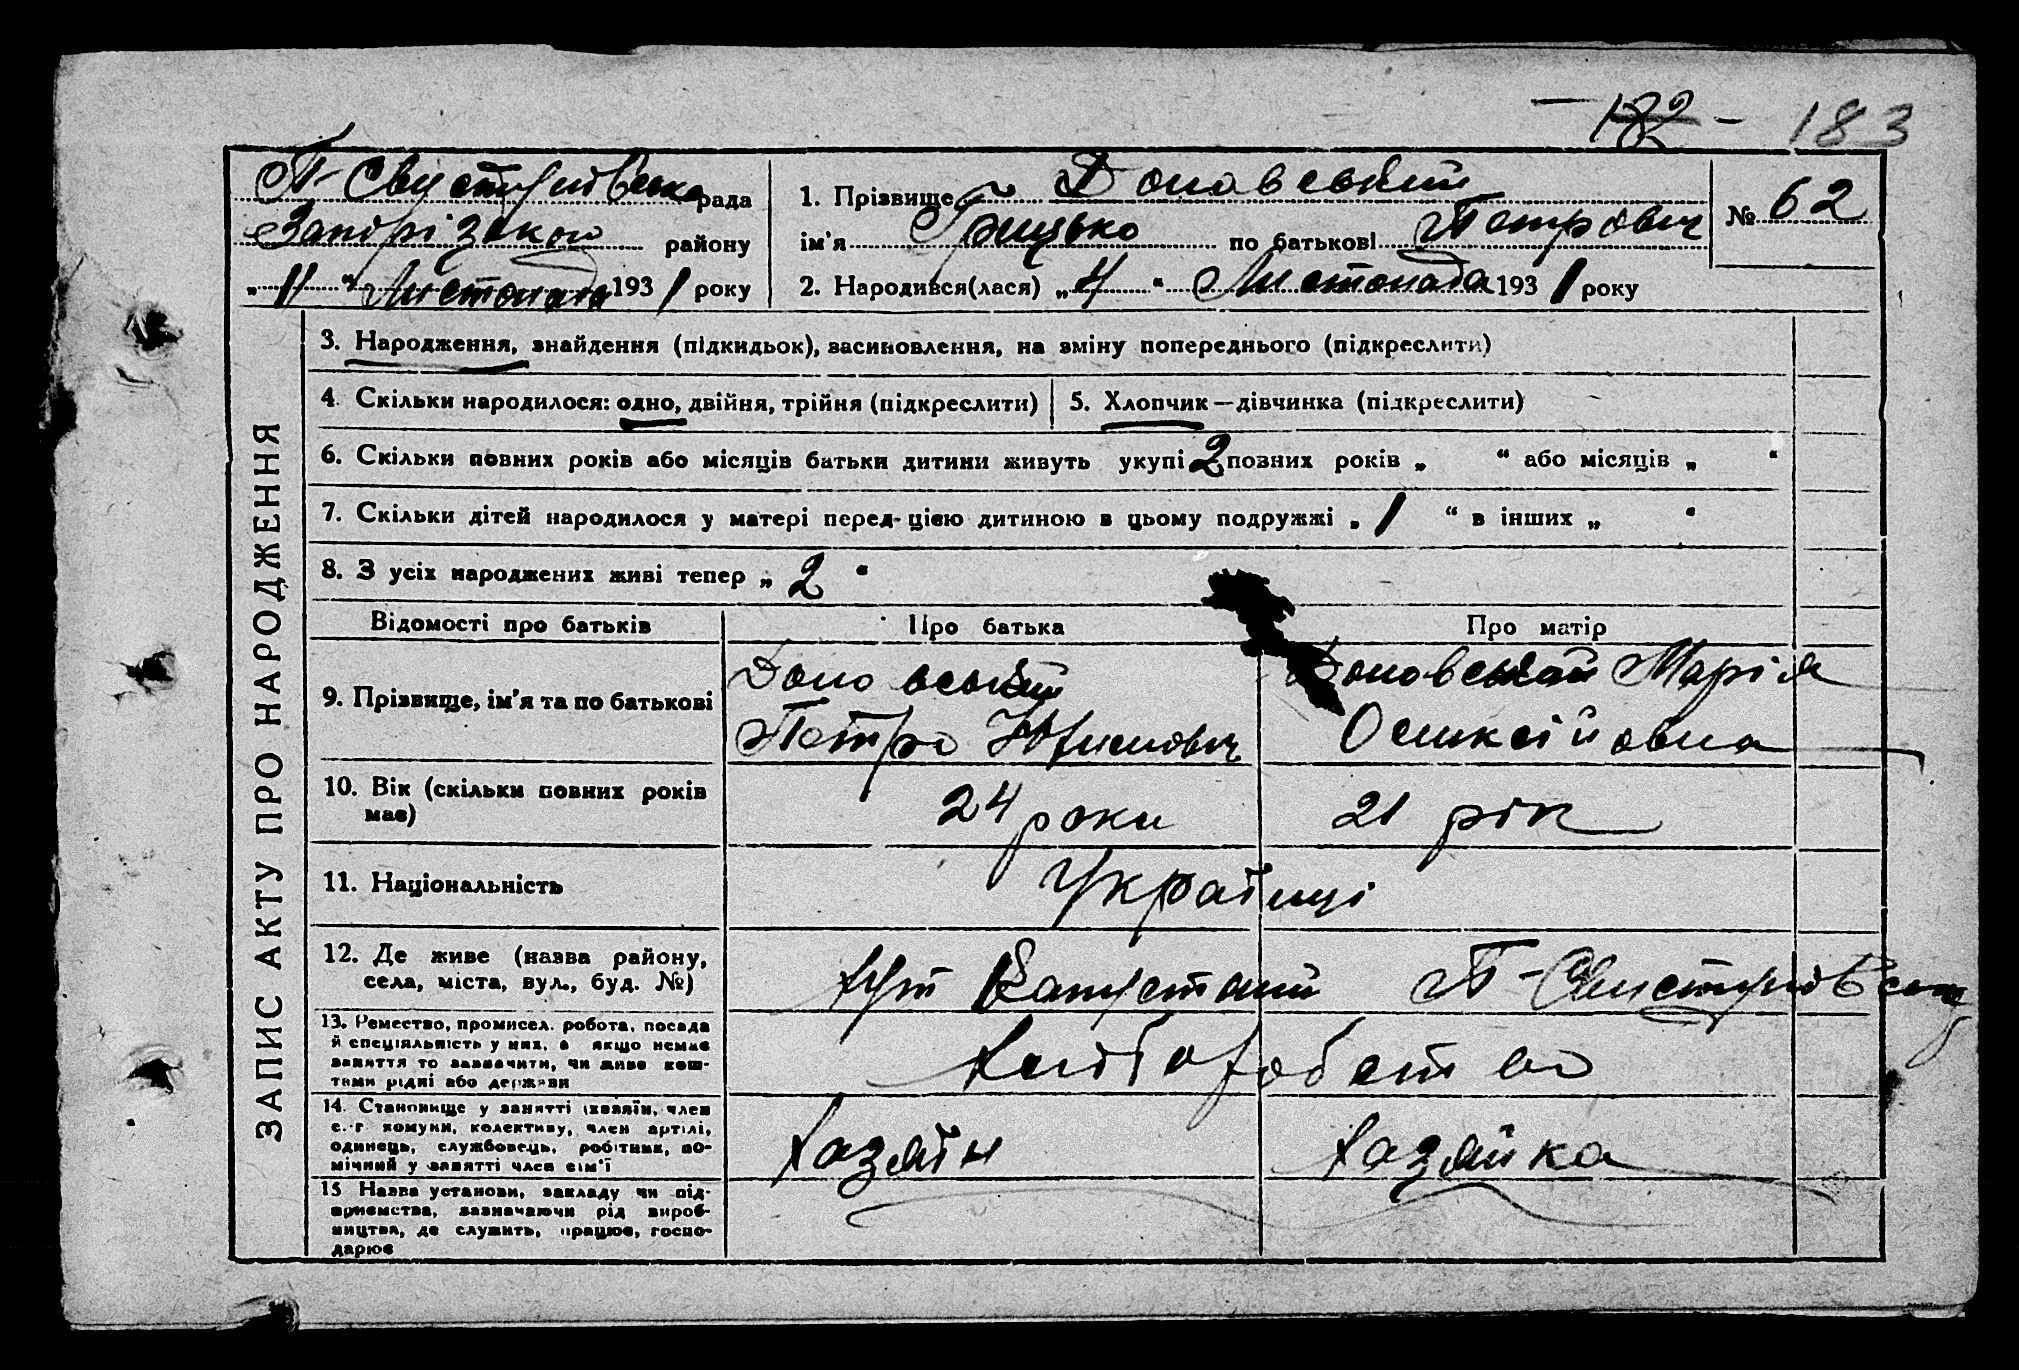 182 - 183
П-Свистунівська рада
Запорізького району
„ 11 “ Листопада 1931 року
1. Прізвище Доновський
ім'я Грицько по батькові Петрович
№ 62
2. Народився(лася) „ 4 “ Листопада 1931 року
ЗАПИС АКТУ ПРО НАРОДЖЕННЯ
3. Народження, знайдення (підкидьок), засиновлення, на зміну попереднього (підкреслити)
4. Скільки народилося: одно, двійня, трійня (підкреслити)
5. Хлопчик—дівчинка (підкреслити)
6. Скільки повних років або місяців батьки дитини живуть укупі 2 повних років „ “ або місяців „ “
7. Скільки дітей народилося у матері перед цією дитиною в цьому подружжі „ 1 “ в інших „ “
8. З усіх народжених живі тепер „ 2 “
Відомості про батьків Про батька Про матір
9. Прізвище, ім'я та по батькові
Доновський
Петро
Доновська Марія
10. Вік (скільки повних років
має)
24 роки
21 рік
11. Національність
Українці
12. Де живе (назва району,
села, міста, вул., буд. №)
хут Капустяний П-Свистунівської
13. Ремество, промисел, робота, посада
й спеціяльність у них, а якщо немає
заняття то зазначити, чи живе кош-
тами рідні або держави
Хліборобство
14. Становище у занятті (хазяїн, член
с.-г комуни, колективу, член артілі,
одинець, службовець, робітник, по-
мічний у занятті член сім'ї
Хазяїн
Хазяйка
15 Назва установи, закладу чи під-
приємства, зазначаючи рід вироб-
ництва, де служить, працює, госпо-
дарює